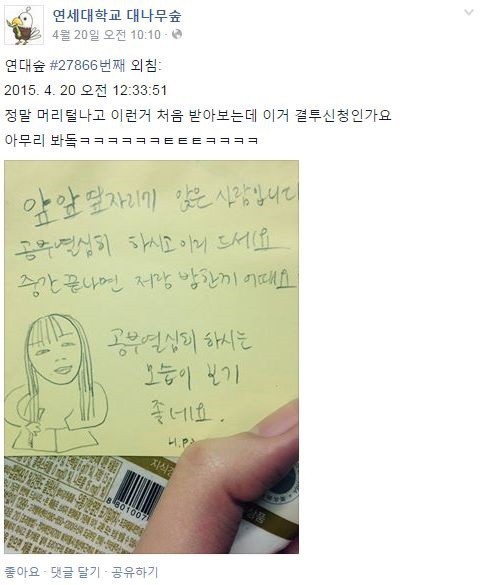 연세대학교 대나무숲
4월 20일 오전 10:10
연대숲 #27866번째 외침:
2015. 4. 20 오전 12:33:51
정말 머리털나고 이런거 처음 받아보는데 이거 결투신청인가요
아무리 봐돜ㅋㅋㅋㅋㅋㅋㅌㅌㅌㅋㅋㅋㅋ
앞앞옆자리에 앉은 사람입니다
공부열심히 하시고 이리 드세요
중간 끝나면 저랑 밥한끼 어때요
공부열심히 하시는
모습이 보기
좋네요.
지식경
상품
좋아요 · 댓글 달기 · 공유하기